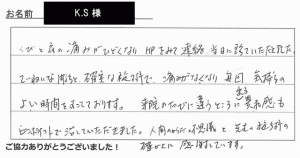 お名前 K.S 様
くびと肩の痛みがひどくなり HPをみて連絡、当日に診ていただきました。
ていねいな問診と、確実な施術で、痛みがなくなり 毎回 気持ちの
よい時間をすごしております。 来院のたびに違うところに 出る 異和感も
ピンポイントで治していただきました。人間のからだの不思議と 先生の施術の
確かさに 感謝しています。
ご協力ありがとうございました！